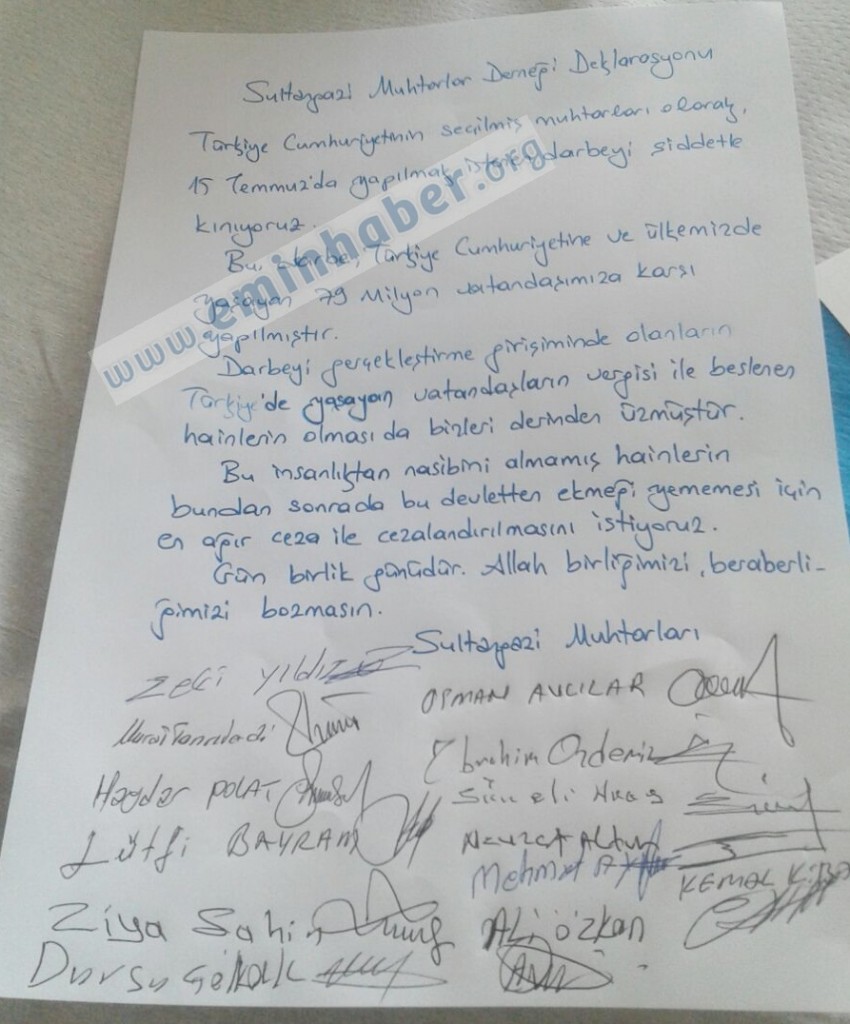 Sultangazi Muhtarlar Derneği Deklarasyonu
Türkiye Cumhuriyetinin seçilmiş muhtarları olarak,
15 Temmuz'da yapılmak istenen darbeyi şiddetle
kınıyoruz.
Bu, darbe, Türkiye Cumhuriyetine ve ülkemizde
yaşayan 79 Milyon vatandaşımıza karşı
yapılmıştır.
Darbeyi gerçekleştirme girişiminde olanların
Türkiye'de yaşayan vatandaşların vergisi ile beslenen
hainlerin olması da bizleri derinden üzmüştür.
Bu insanlıktan nasibini almamış hainlerin
bundan sonrada bu devletten ekmeği yememesi için
en ağır ceza ile cezalandırılmasını istiyoruz.
Gün birlik günüdür. Allah birliğimizi, beraberli-
ğimizi bozmasın.
Sultangazi Muhtarları
Zeki Yıldız
OSMAN AVCILAR
İbrahim Özdemir
Haydar POLAT
Lütfi BAYRAM
Nevzat Altun
Mehmet
KEMAL
Ziya Şahin
Ali ÖZkan
Dursun
www.eminhaber.org